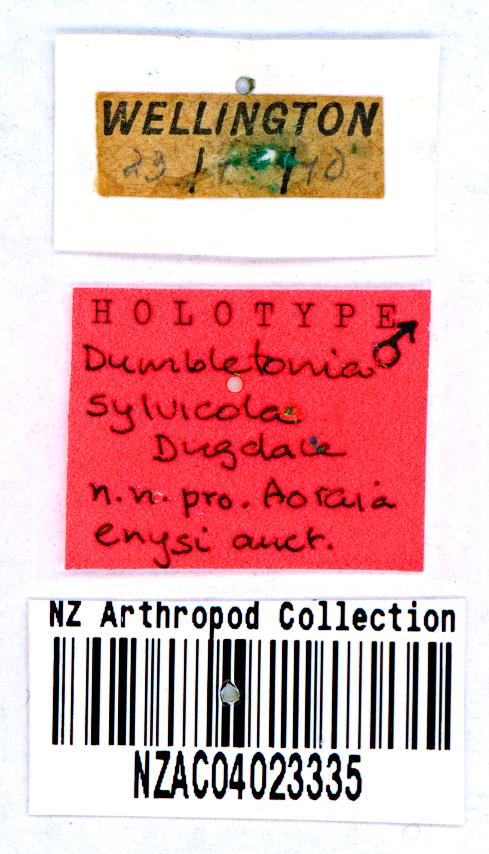 WELLINGTON
23/ /40
HOLOTYPE ♂
Dumbletonia
sylvicola
Dugdale
n.n. pro. Aoraia
enysi auct.
NZ Arthropod Collection
NZAC04023335